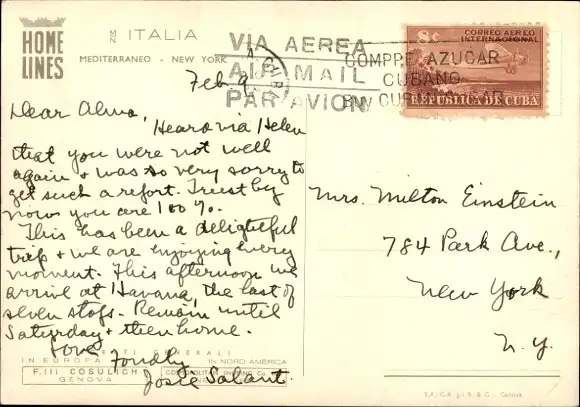 HOME
LINES
M/N ITALIA
MEDITERRANEO - NEW YORK
VIA AEREA
AIR MAIL
PAR AVION
COMPRE AZUCAR
CUBANO
BUY CUBAN SUGAR
8c
CORREO AEREO
INTERNACIONAL
REPUBLICA DE CUBA
Feb 9
Dear Alma,
Heard via Helen
that you were not well
again & was so very sorry to
get such a report. Trust by
now you are 100%.
This has been a delightful
trip & we are enjoying every
moment. This afternoon we
arrive at Havana, the last of
seven stops. Remain until
Saturday & then home.
Love, Fondly
Josie Salant.
Mrs. Milton Einstein
784 Park Ave.,
New York
N.Y.
GENERALI
IN EUROPA
IN NORD AMERICA
F.LLI COSULICH
GENOVA